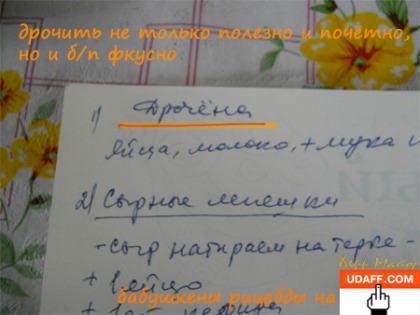 дрочить не только полезно и почётно,
но и б/п фкусно
1) Дрочёна
яйца, молоко, + мука и
2) Сырные лепешки
- сыр натираем на терке -
+ 1 яйцо
+ 1
Херр Майор
бабушкены рицебды на
UDAFF.COM